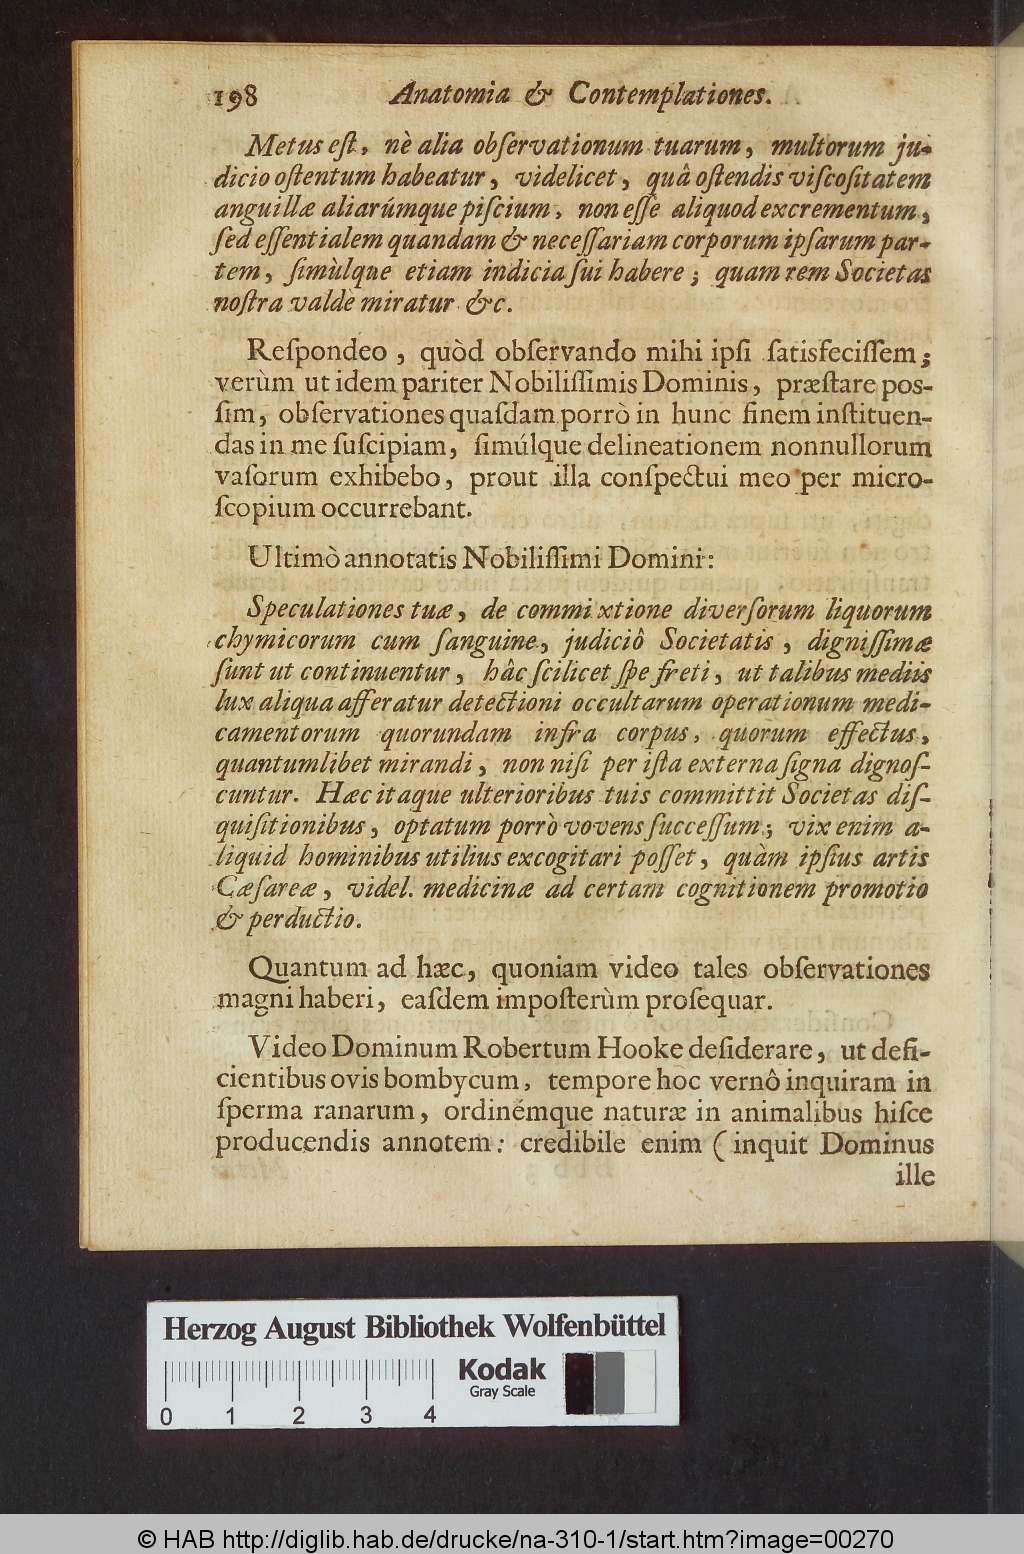 198 Anatomia & Contemplationes.
Metus eſt, nè alia obſervationum tuarum, multorum ju-
dicio oſtentum habeatur, videlicet, quâ oſtendis viſcoſitatem
anguillæ aliarúmque piſcium, non eſſe aliquod excrementum,
ſed eſſentialem quandam & neceſſariam corporum ipſarum par-
tem, ſimùlque etiam indicia ſui habere; quam rem Societas
noſtra valdè miratur &c.
Reſpondeo, quòd obſervando mihi ipſi ſatisfeciſſem;
verùm ut idem pariter Nobiliſſimis Dominis, præſtare pos-
ſim, obſervationes quaſdam porrò in hunc finem inſtituen-
das in me ſuſcipiam, ſimúlque delineationem nonnullorum
vaſorum exhibebo, prout illa conſpectui meo per micro-
ſcopium occurrebant.
Ultimò annotatis Nobiliſſimi Domini:
Speculationes tuæ, de commixtione diverſorum liquorum
chymicorum cum ſanguine, judiciô Societatis, digniſſimæ
ſunt ut continuentur, hâc ſcilicet ſpe freti, ut talibus mediis
lux aliqua afferatur detectioni occultarum operationum medi-
camentorum quorundam infra corpus, quorum effectus,
quantumlibet mirandi, non niſi per iſta externa ſigna dignoſ-
cuntur. Hæc itaque ulterioribus tuis committit Societas diſ-
quiſitionibus, optatum porrò vovens ſucceſſum; vix enim a-
liquid hominibus utilius excogitari poſſet, quàm ipſius artis
Cæſareæ, videl. medicinæ ad certam cognitionem promotio
& perductio.
Quantum ad hæc, quoniam video tales obſervationes
magni haberi, eaſdem impoſterùm proſequar.
Video Dominum Robertum Hooke deſiderare, ut defi-
cientibus ovis bombycum, tempore hoc vernô inquiram in
ſperma ranarum, ordinémque naturæ in animalibus hiſce
producendis annotem: credibile enim (inquit Dominus
ille
Herzog August Bibliothek Wolfenbüttel
Kodak
Gray Scale
0 1 2 3 4
© HAB http://diglib.hab.de/drucke/na-310-1/start.htm?image=00270